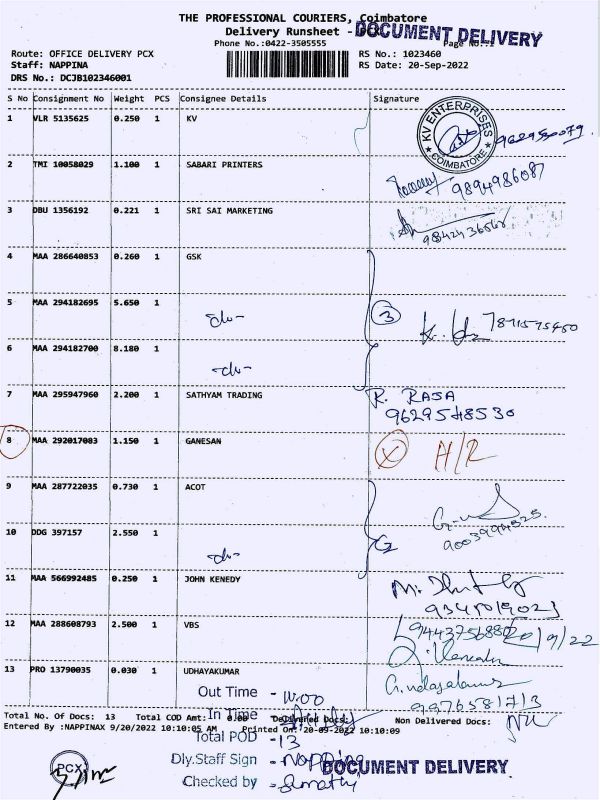 THE PROFESSIONAL COURIERS, Coimbatore
Delivery Runsheet -
DOCUMENT DELIVERY
Phone No.:0422-3505555
Page No.:1
Route: OFFICE DELIVERY PCX
RS No.: 1023460
Staff: NAPPINA
RS Date: 20-Sep-2022
DRS No.: DCJB102346001
S No Consignment No Weight PCS Consignee Details Signature
1 VLR 5135625 0.250 1 KV
KV ENTERPRISES
★ COIMBATORE ★
2 TMI 10058029 1.100 1 SABARI PRINTERS
9894986087
3 DBU 1356192 0.221 1 SRI SAI MARKETING
4 MAA 286640853 0.260 1 GSK
5 MAA 294182695 5.650 1 -do- 3
6 MAA 294182700 8.180 1 -do-
7 MAA 295947960 2.200 1 SATHYAM TRADING R. RAJA
9629548530
8 MAA 292017083 1.150 1 GANESAN X H/R
9 MAA 287722035 0.730 1 ACOT
10 DDG 397157 2.550 1 -do-
11 MAA 566992485 0.250 1 JOHN KENEDY
12 MAA 288608793 2.500 1 VBS
13 PRO 13790035 0.030 1 UDHAYAKUMAR
Out Time -
Total No. Of Docs: 13 Total COD Amt: 0.00 Delivered Docs: Non Delivered Docs:
In Time
Entered By :NAPPINAX 9/20/2022 10:10:05 AM Printed On: 20-09-2022 10:10:09
Total POD - 13
Dly.Staff Sign - Nappina
DOCUMENT DELIVERY
Checked by -
PCX